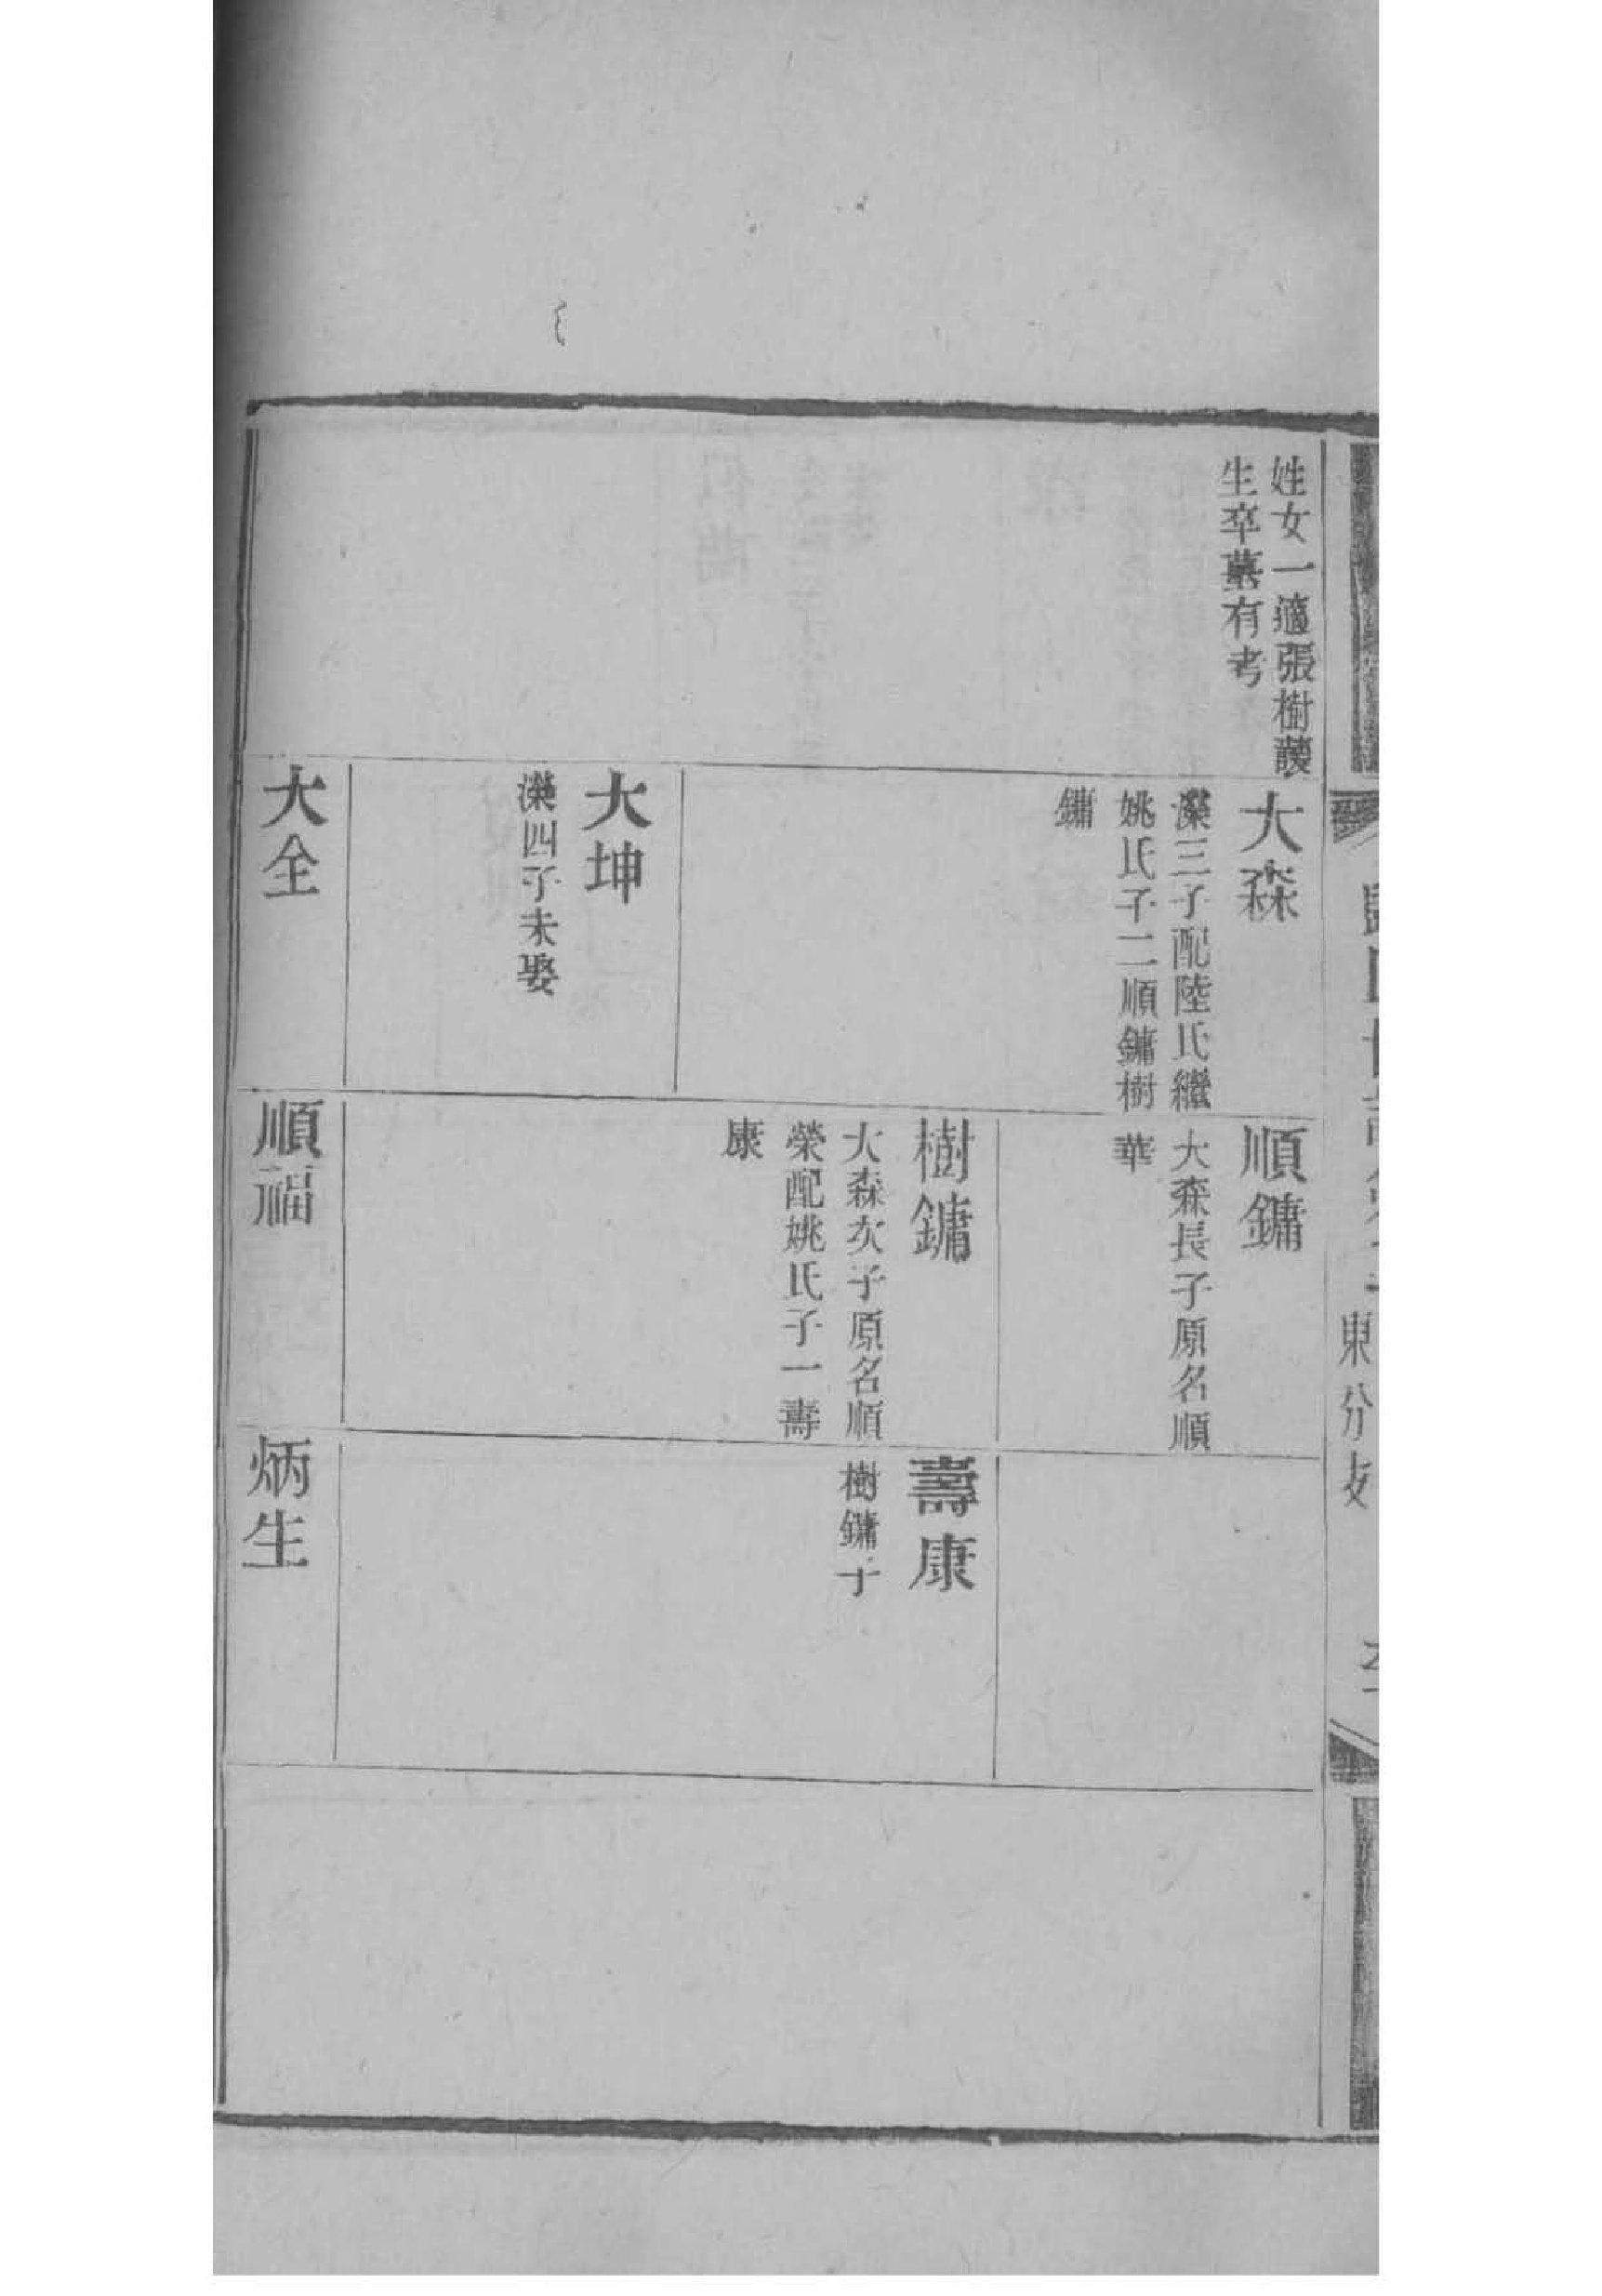 姓女一適張樹護
生卒墓有考
大森
濚三子配陸氏繼
姚氏子二順鏞樹
鏞
大坤
濚四子未娶
大全
順鏞
大森長子原名順
華
樹鏞
大森次子原名順
榮配姚氏子一壽
康
順福
壽康
樹鏞子
炳生
東分支